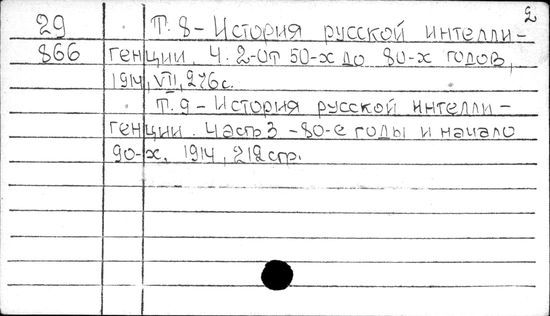 2
29 Т. 8 - История русской интелли-
866 генции. Ч. 2-от 50-х до 80-х годов,
1914, VII, 276 с.
Т. 9 - История русской интелли-
генции. Часть 3 - 80-е годы и начало
90-х, 1914, 212 стр.